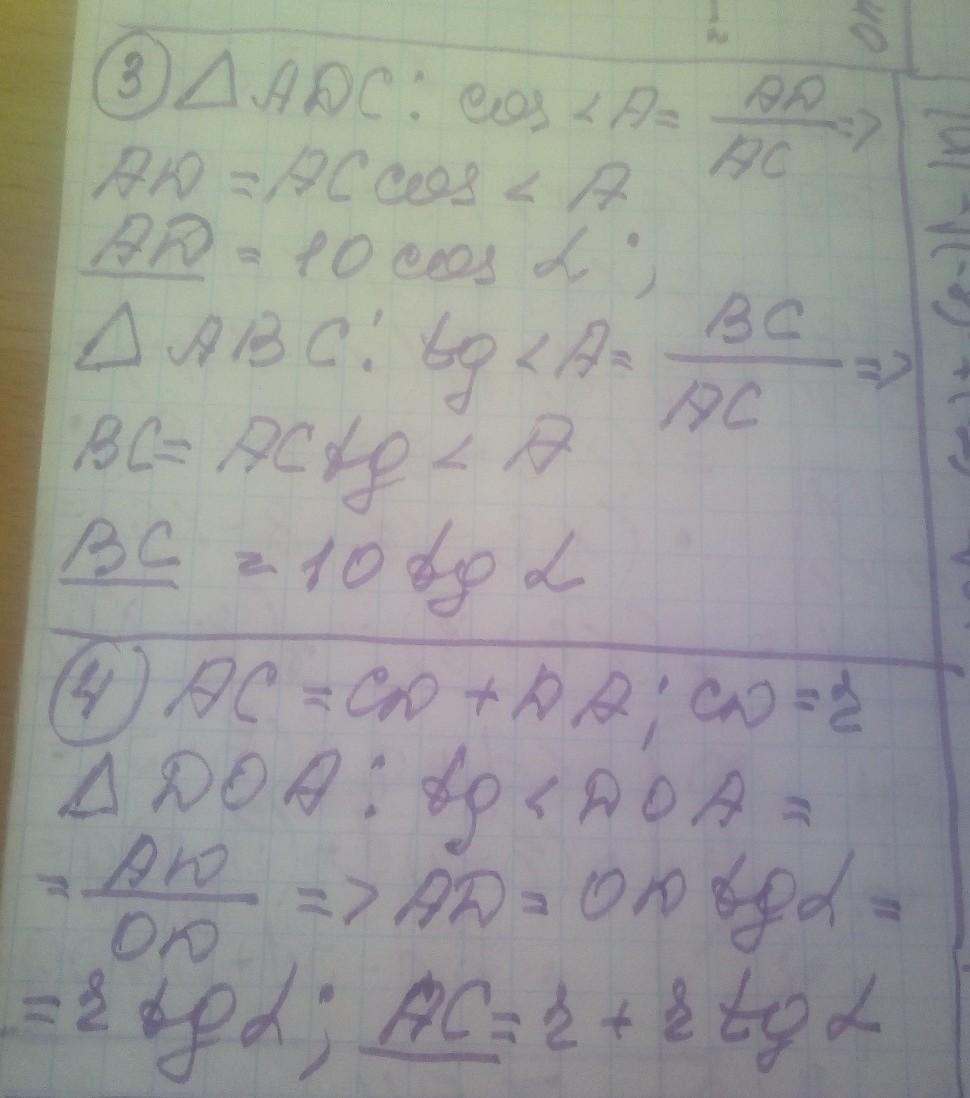 ③ △ADC: cos <A = AD/AC =>
AD = AC cos < A
AD = 10 cos α;
△ABC: tg <A = BC/AC =>
BC = AC tg < A
BC = 10 tg α
④ AC = CD + DA; CD = r
△DOA: tg < DOA =
= AD/OD => AD = OD tg α =
= r tg α; AC = r + r tg α